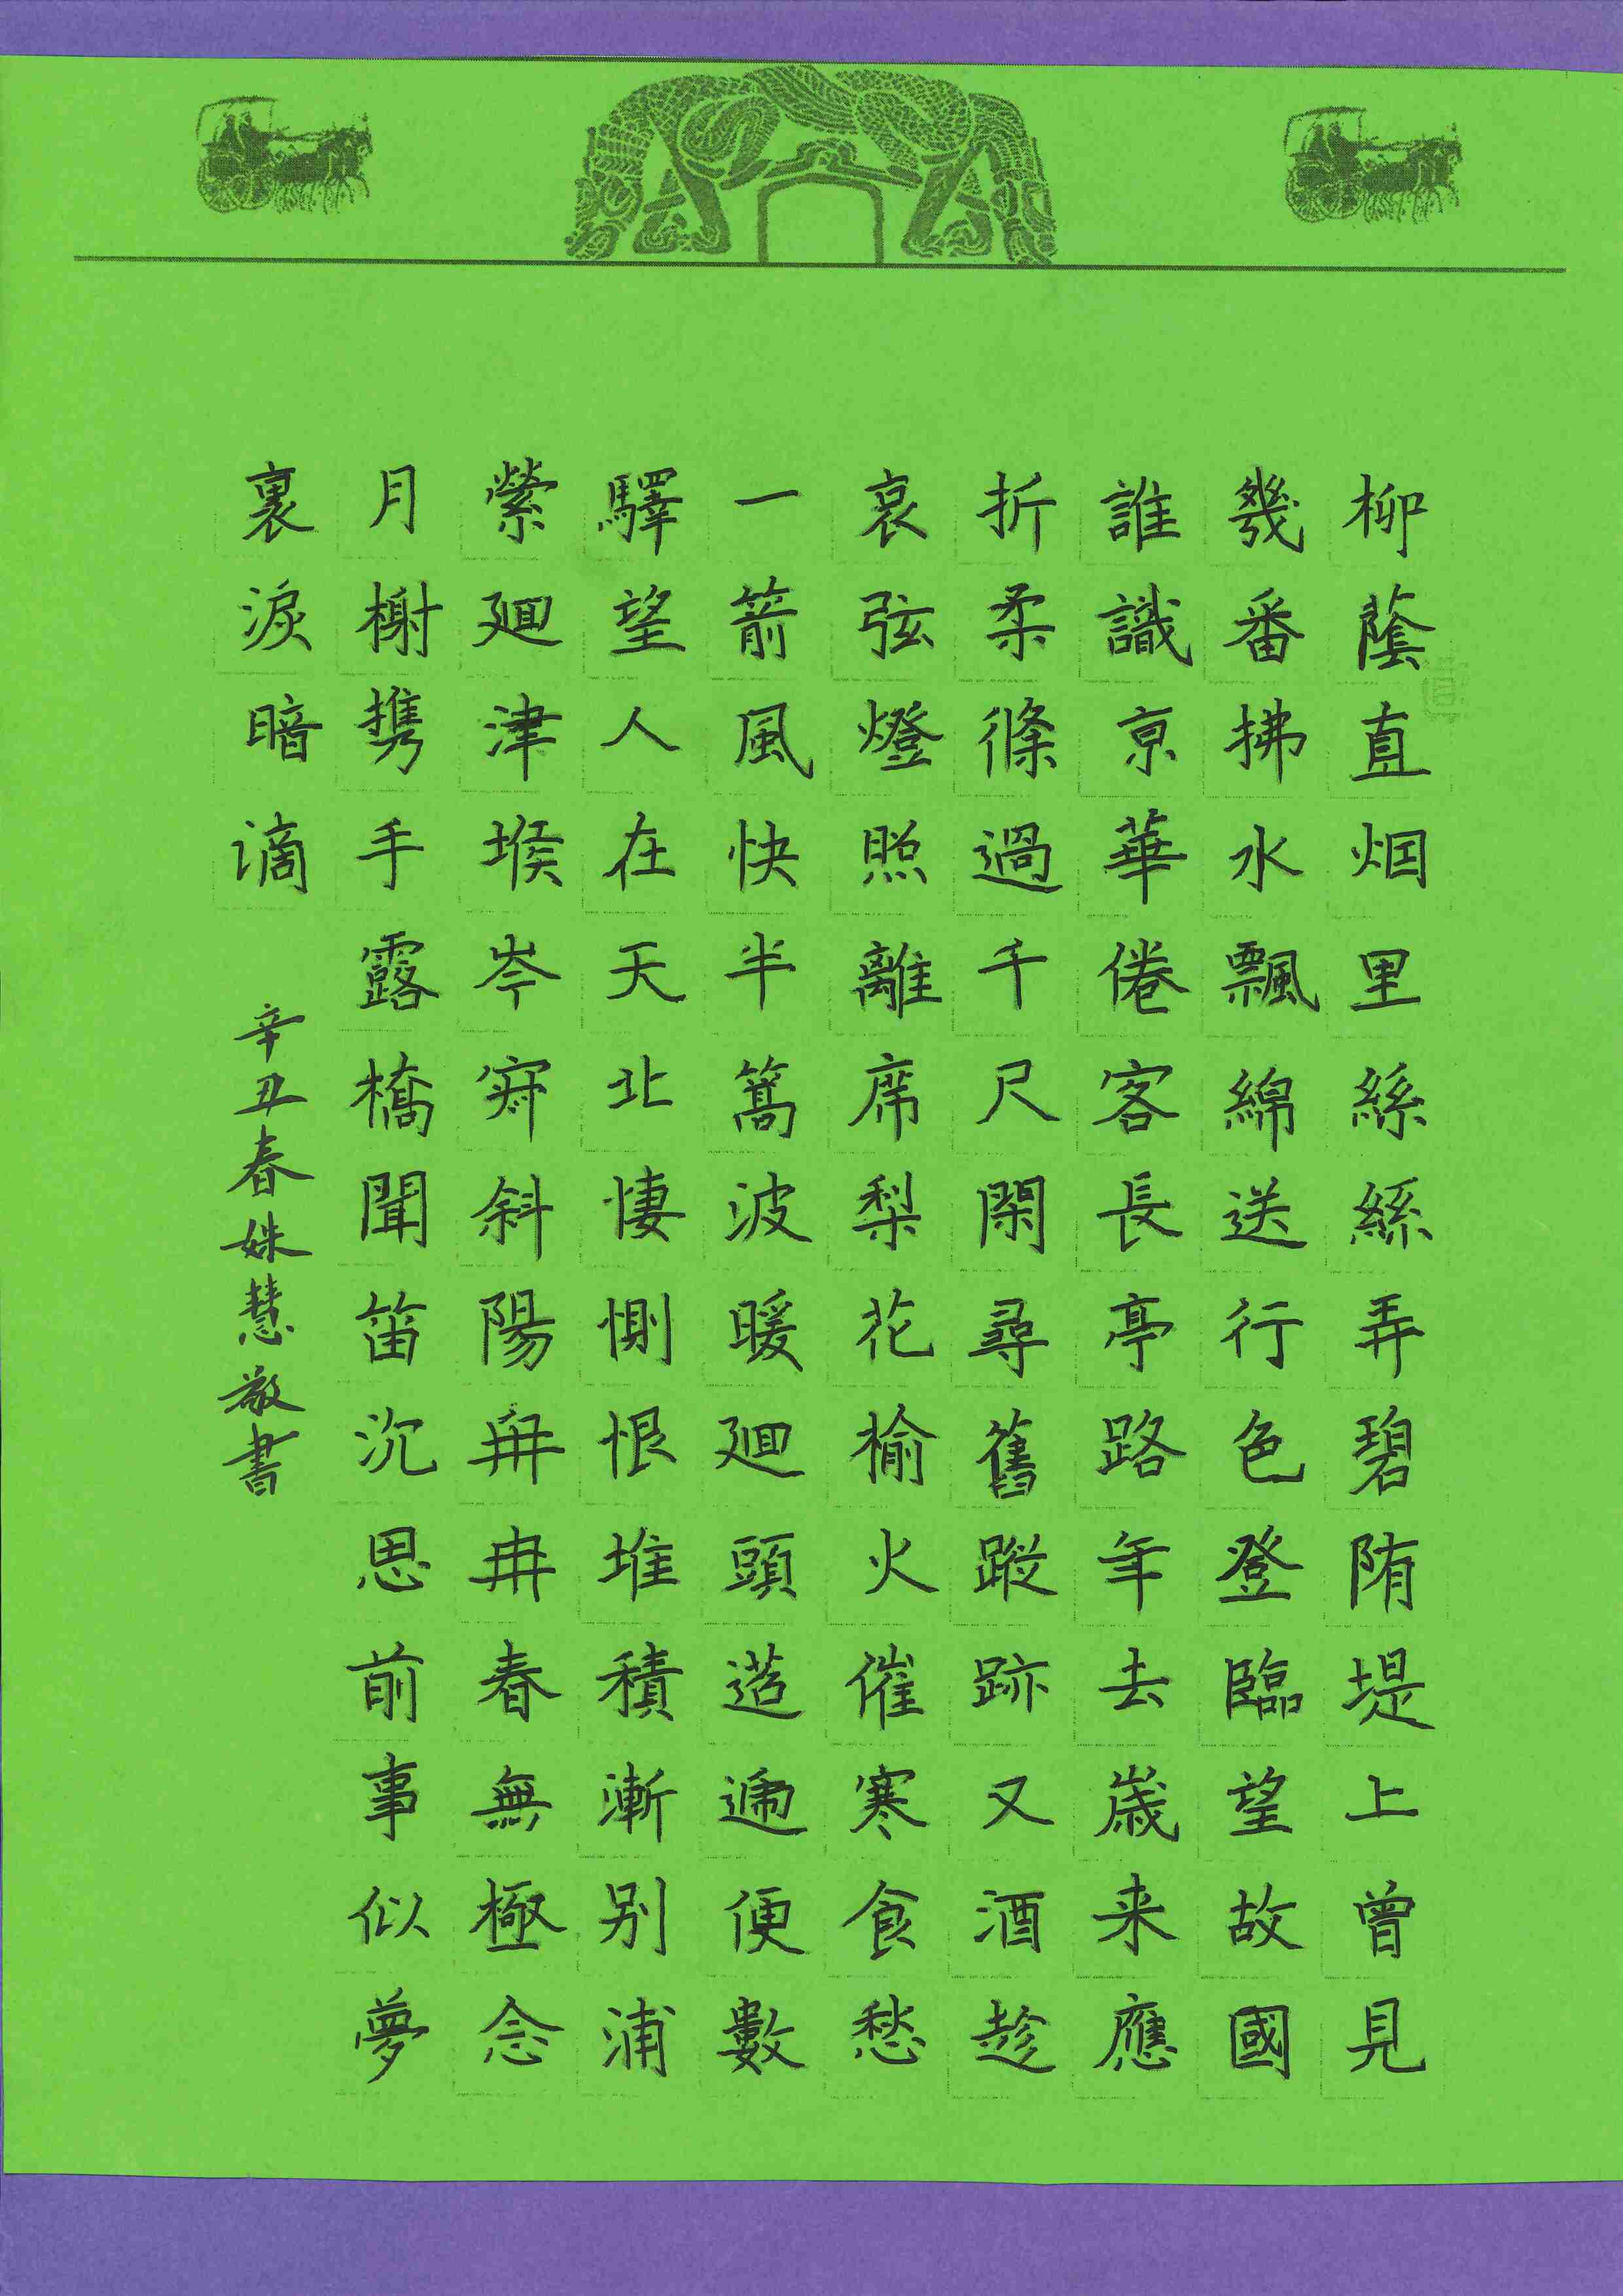 柳蔭直烟里絲絲弄碧陏堤上曾見
幾番拂水飄綿送行色登臨望故國
誰識京華倦客長亭路年去歲来應
折柔條過千尺閑尋舊蹤跡又酒趁
哀弦燈照離席梨花榆火催寒食愁
一箭風快半篙波暖廻頭迢遞便數
驛望人在天北悽惻恨堆積漸別浦
縈廻津堠岑寂斜陽冉冉春無極念
月榭携手露橋聞笛沉思前事似夢
裏淚暗滴
辛丑春姝慧敬書